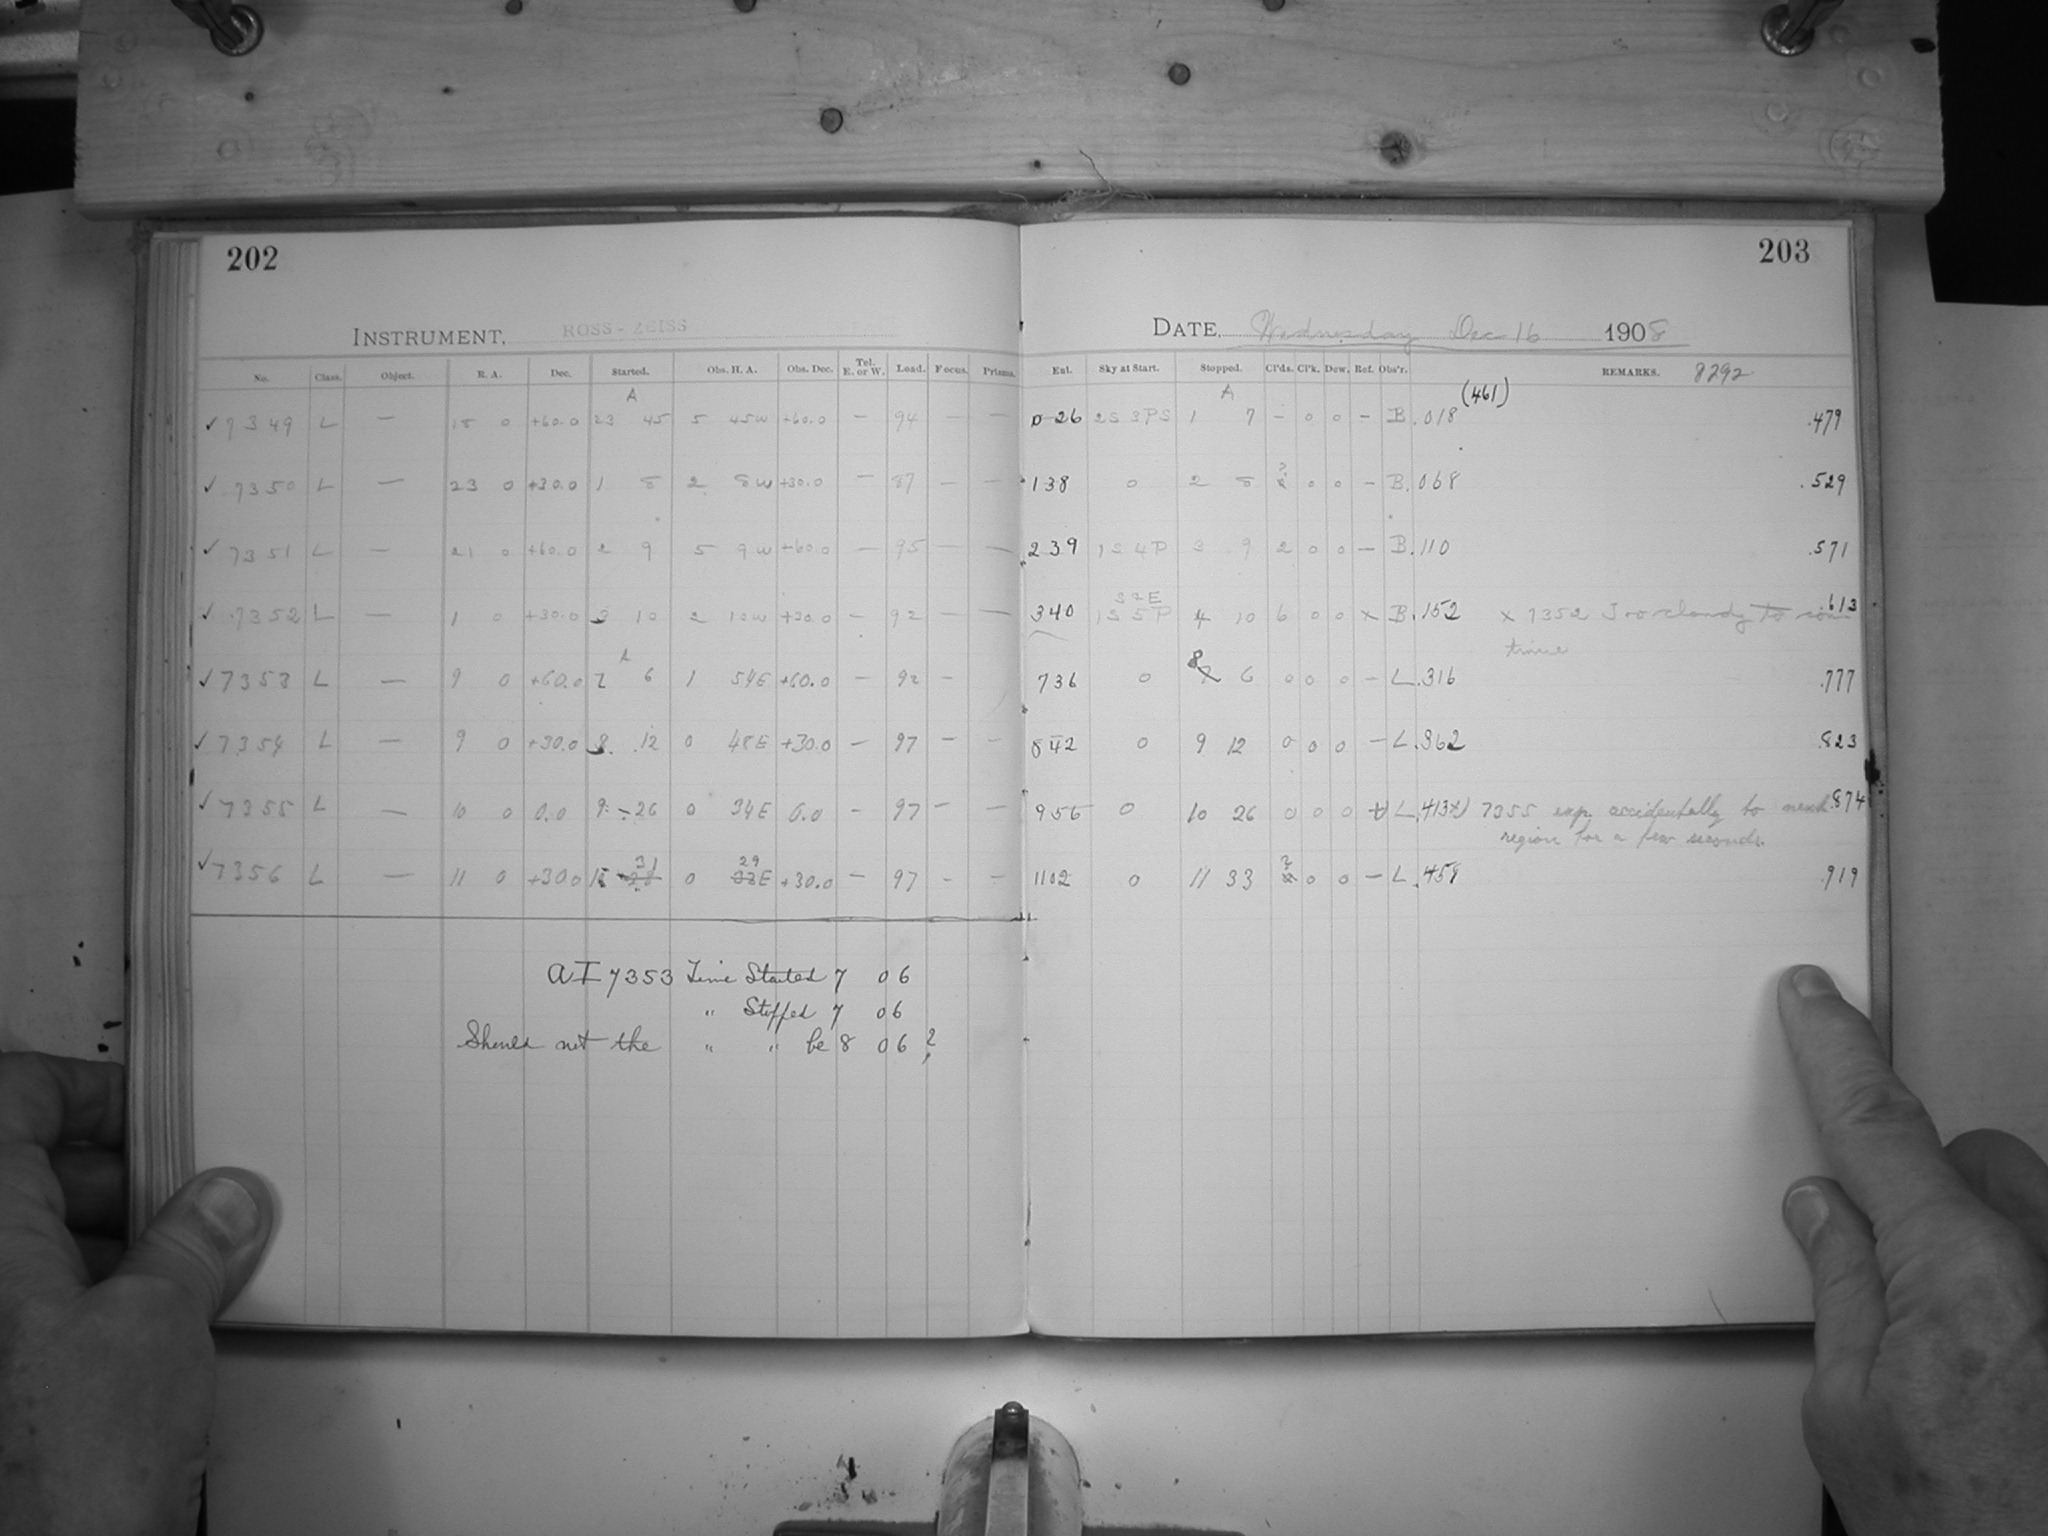 202
INSTRUMENT, ROSS-ZEISS
No. Class. Object. R. A. Dec. Started. Obs. H. A. Obs. Dec. Tel. E. or W. Load. Focus. Prisms.
A
✓ 7349 L — 18 0 +60.0 23 45 5 45W +60.0 — 94 — —
✓ 7350 L — 23 0 +30.0 1 8 2 8W +30.0 — 87 — —
✓ 7351 L — 21 0 +60.0 2 9 5 9W +60.0 — 95 — —
✓ 7352 L — 1 0 +30.0 3 10 2 10W +30.0 — 92 — —
A
✓ 7353 L — 9 0 +60.0 7 6 1 54E +60.0 — 92 –
✓ 7354 L — 9 0 +30.0 8 12 0 48E +30.0 — 97 – –
✓ 7355 L — 10 0 0.0 9 26 0 34E 0.0 – 97 – —
31 29
✓ 7356 L — 11 0 +30.0 0 33E +30.0 — 97 - —
AI 7353 Time Started 7 06
" Stopped 7 06
Should not the " " be 8 06 ?
203
DATE, Wednesday Dec 16 1908
Ent. Sky at Start. Stopped. Cl'ds. Cl'k. Dew. Ref. Obs'r. REMARKS. 8292
A (461)
0 26 2S 3PS 1 7 – 0 0 – B .018 .479
1 38 0 2 8 ? 0 0 – B .068 .529
2 39 1S 4P 3 9 2 0 0 — B .110 .571
S2E
3 40 1S 5P 4 10 6 0 0 x B .152 x 7352 Too cloudy to con .613
tinue
8
7 36 0 7 6 0 0 0 – L .316 .777
8 42 0 9 12 0 0 0 – L .362 .823
9 56 0 10 26 0 0 0 L .413 x) 7355 exp. accidentally to next .874
region for a few seconds.
?
11 02 0 11 33 0 0 — L .458 .919